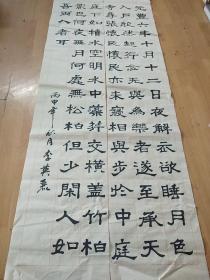 元豐六年十月十二日夜解衣欲睡月色
入戶欣然起行念無與為樂者遂至承天
寺尋張懷民懷民亦未寢相與步於中庭
庭下如積水空明水中藻荇交橫蓋竹柏
影也何夜無月何處無松柏但少閑人如
吾兩人者耳
丙申年秋月李英